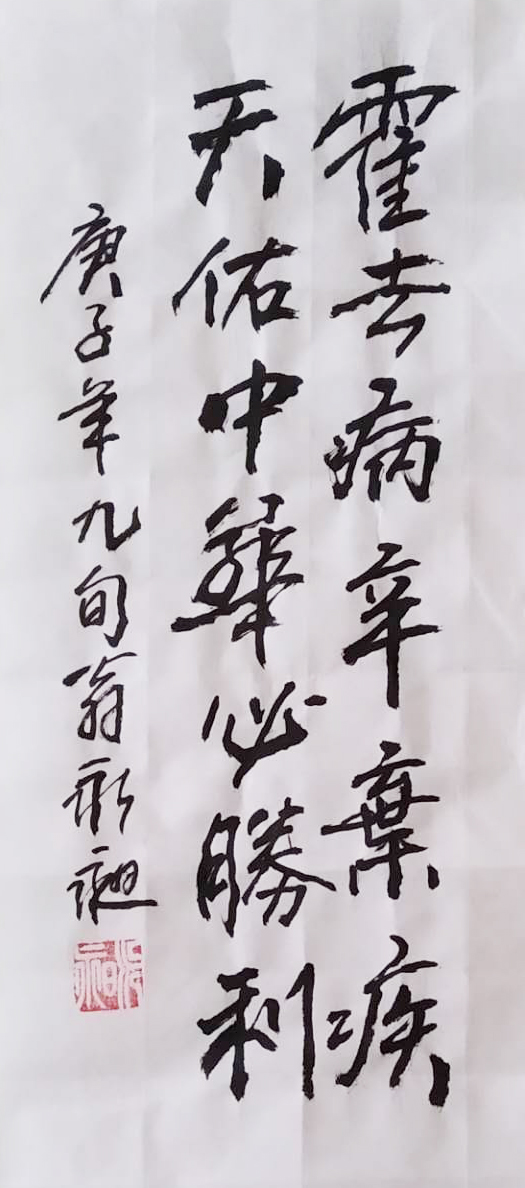 霍去病辛棄疾
天佑中華必勝利
庚子年九旬翁